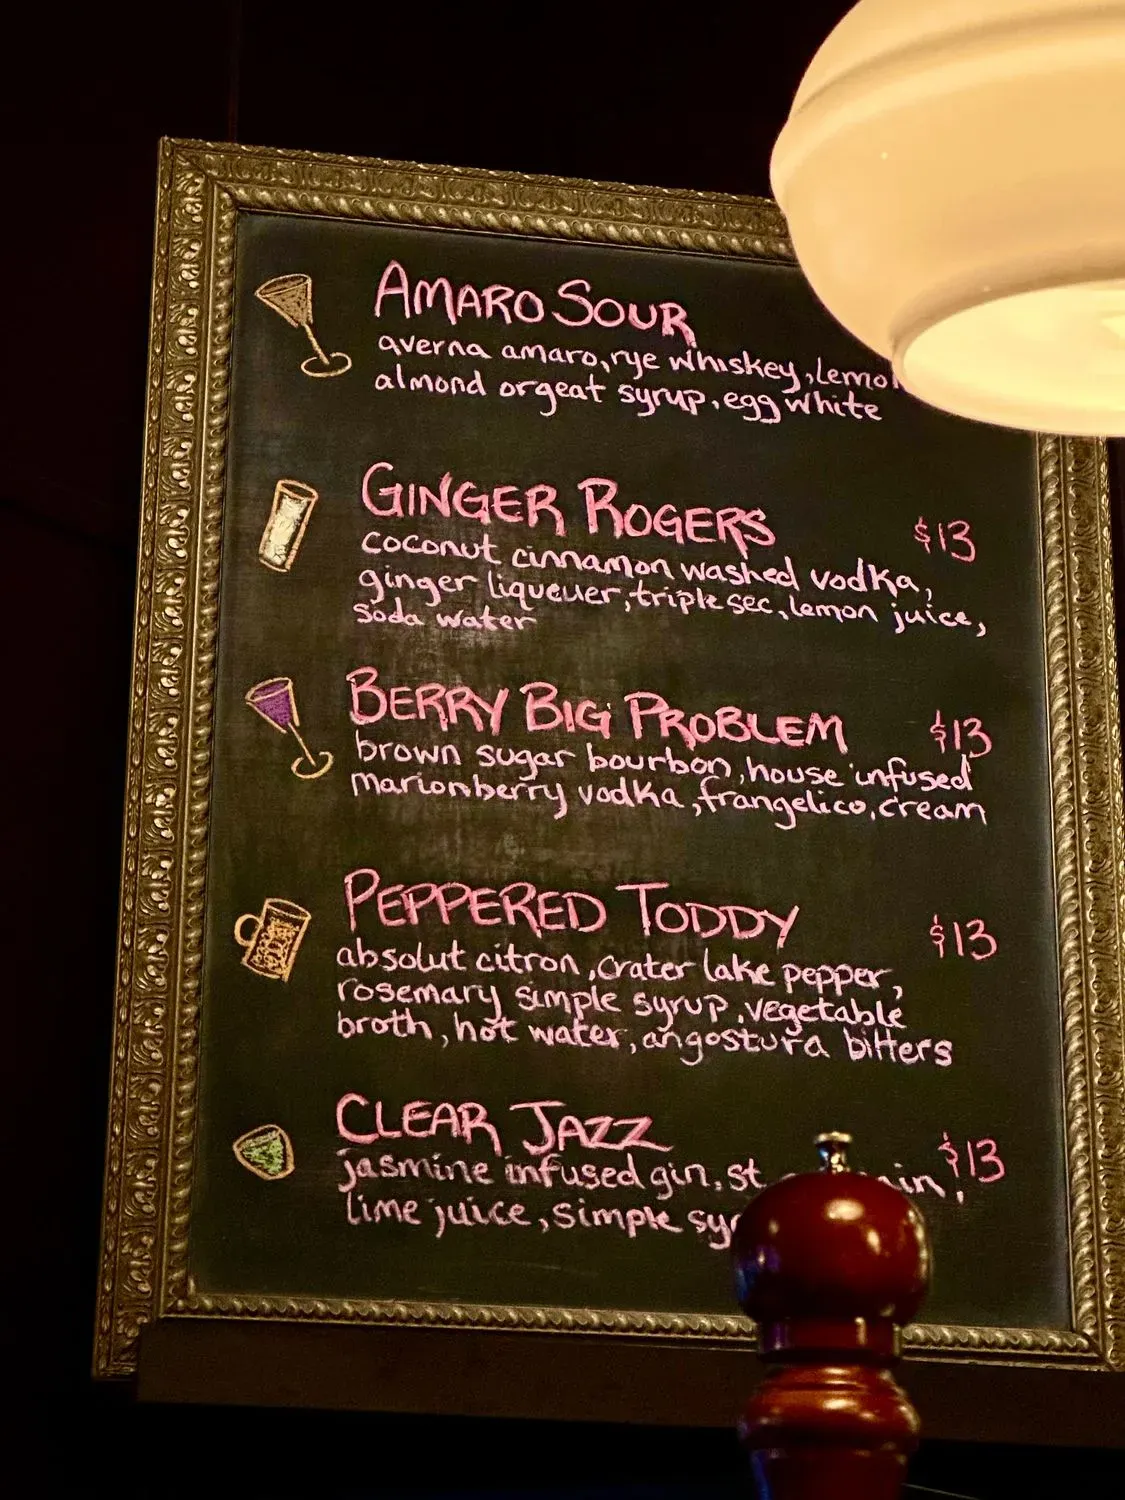 AMARO SOUR
averna amaro, rye whiskey, lemon
almond orgeat syrup, egg white
GINGER ROGERS $13
coconut cinnamon washed vodka,
ginger liqueuer, triple sec, lemon juice,
soda water
BERRY BIG PROBLEM $13
brown sugar bourbon, house infused
marionberry vodka, frangelico, cream
PEPPERED TODDY $13
absolut citron, crater lake pepper,
rosemary simple syrup, vegetable
broth, hot water, angostura bitters
CLEAR JAZZ $13
jasmine infused gin, st
lime juice, simple